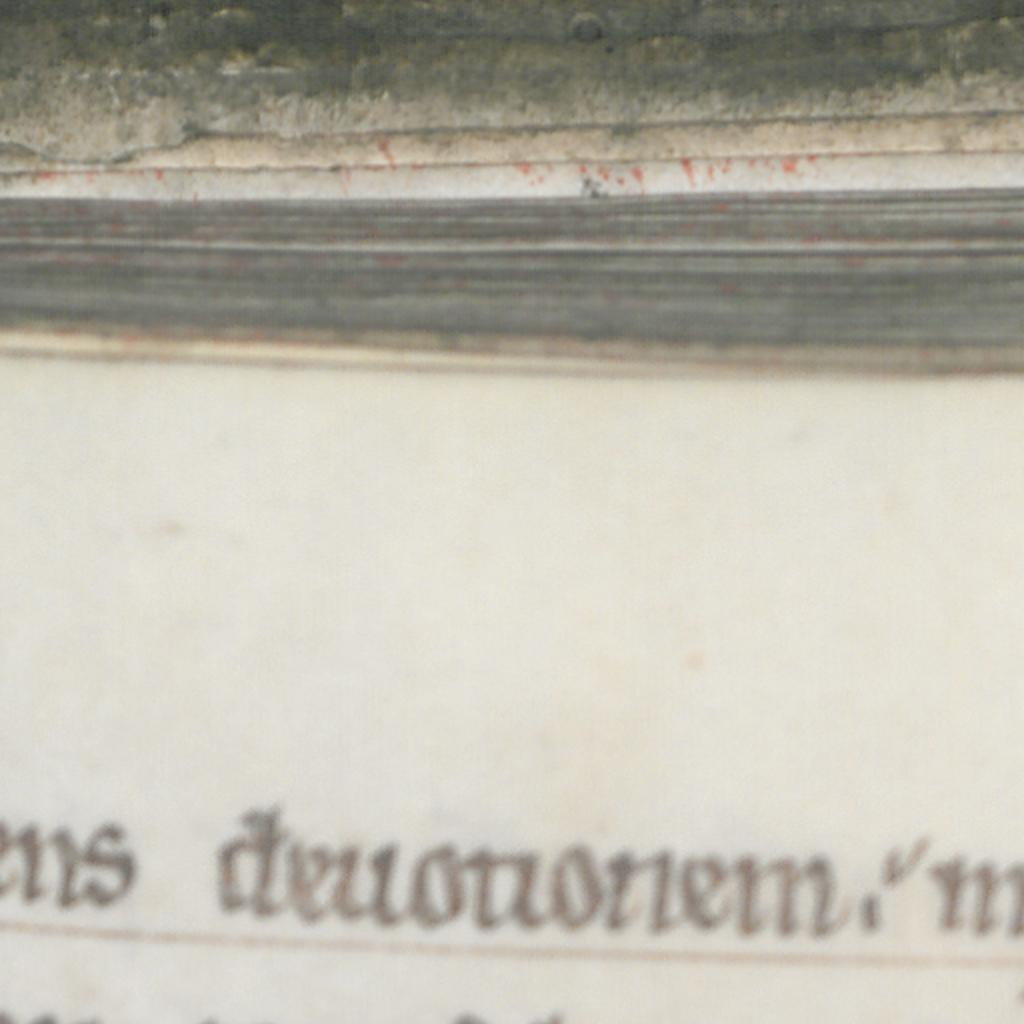 ens deuotionem. m